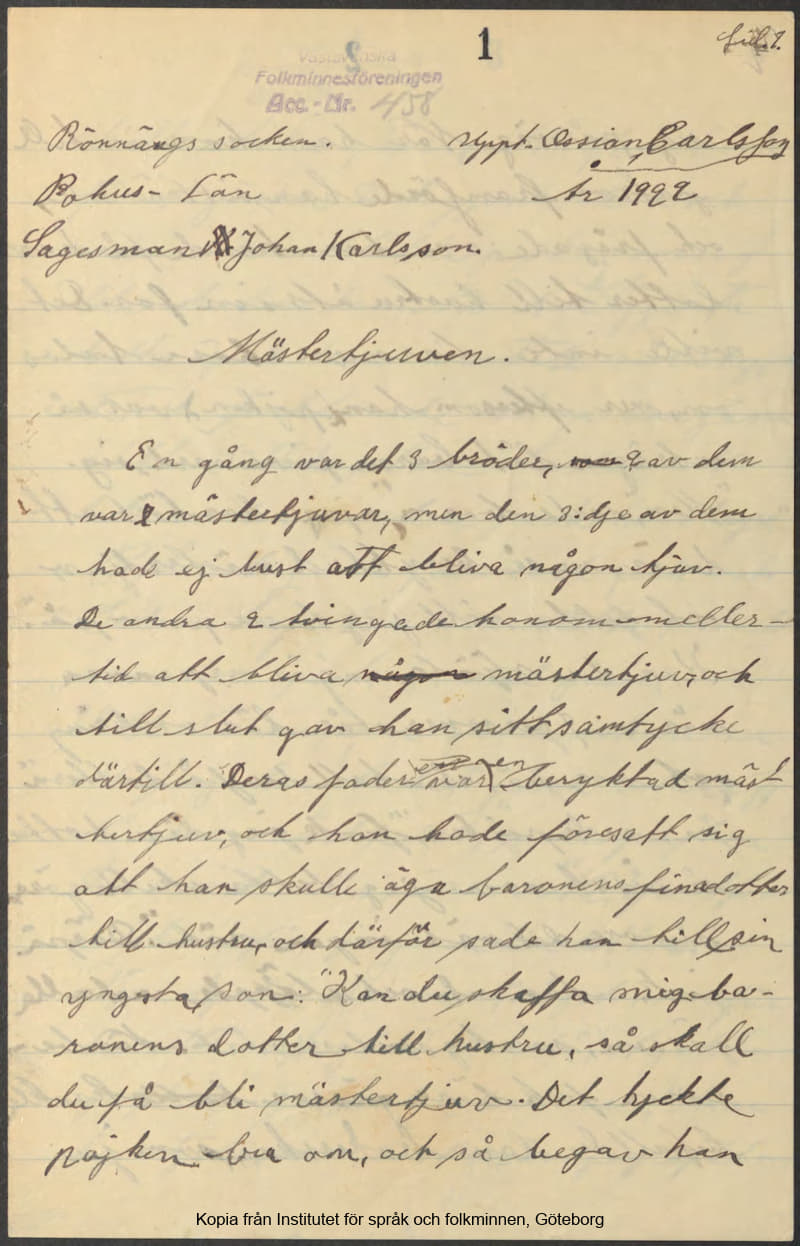 1
Sid. 1.
Västsvenska
Folkminnesföreningen
Acc. - Nr. 458
Rönnängs socken. Uppt. Ossian Carlsson
Bohus - Län År 1922
Sagesman Johan Karlsson.
Mästertjuven.
En gång var det 3 bröder, 2 av dem
var mästertjuvar, men den 3:dje av dem
hade ej lust att bliva någon tjuv.
De andra 2 tvingade honom emeller-
tid att bliva någon mästertjuv, och
till slut gav han sitt samtycke
därtill. Deras fader var en beryktad mäst
tertjuv, och han hade föresatt sig
att han skulle äga baronens fina dotter
till hustru, och därför sade han till sin
yngsta son: "Kan du skaffa mig ba-
ronens dotter till hustru, så skall
du få bli mästertjuv. Det tyckte
pojken bra om, och så begav han
Kopia från Institutet för språk och folkminnen, Göteborg